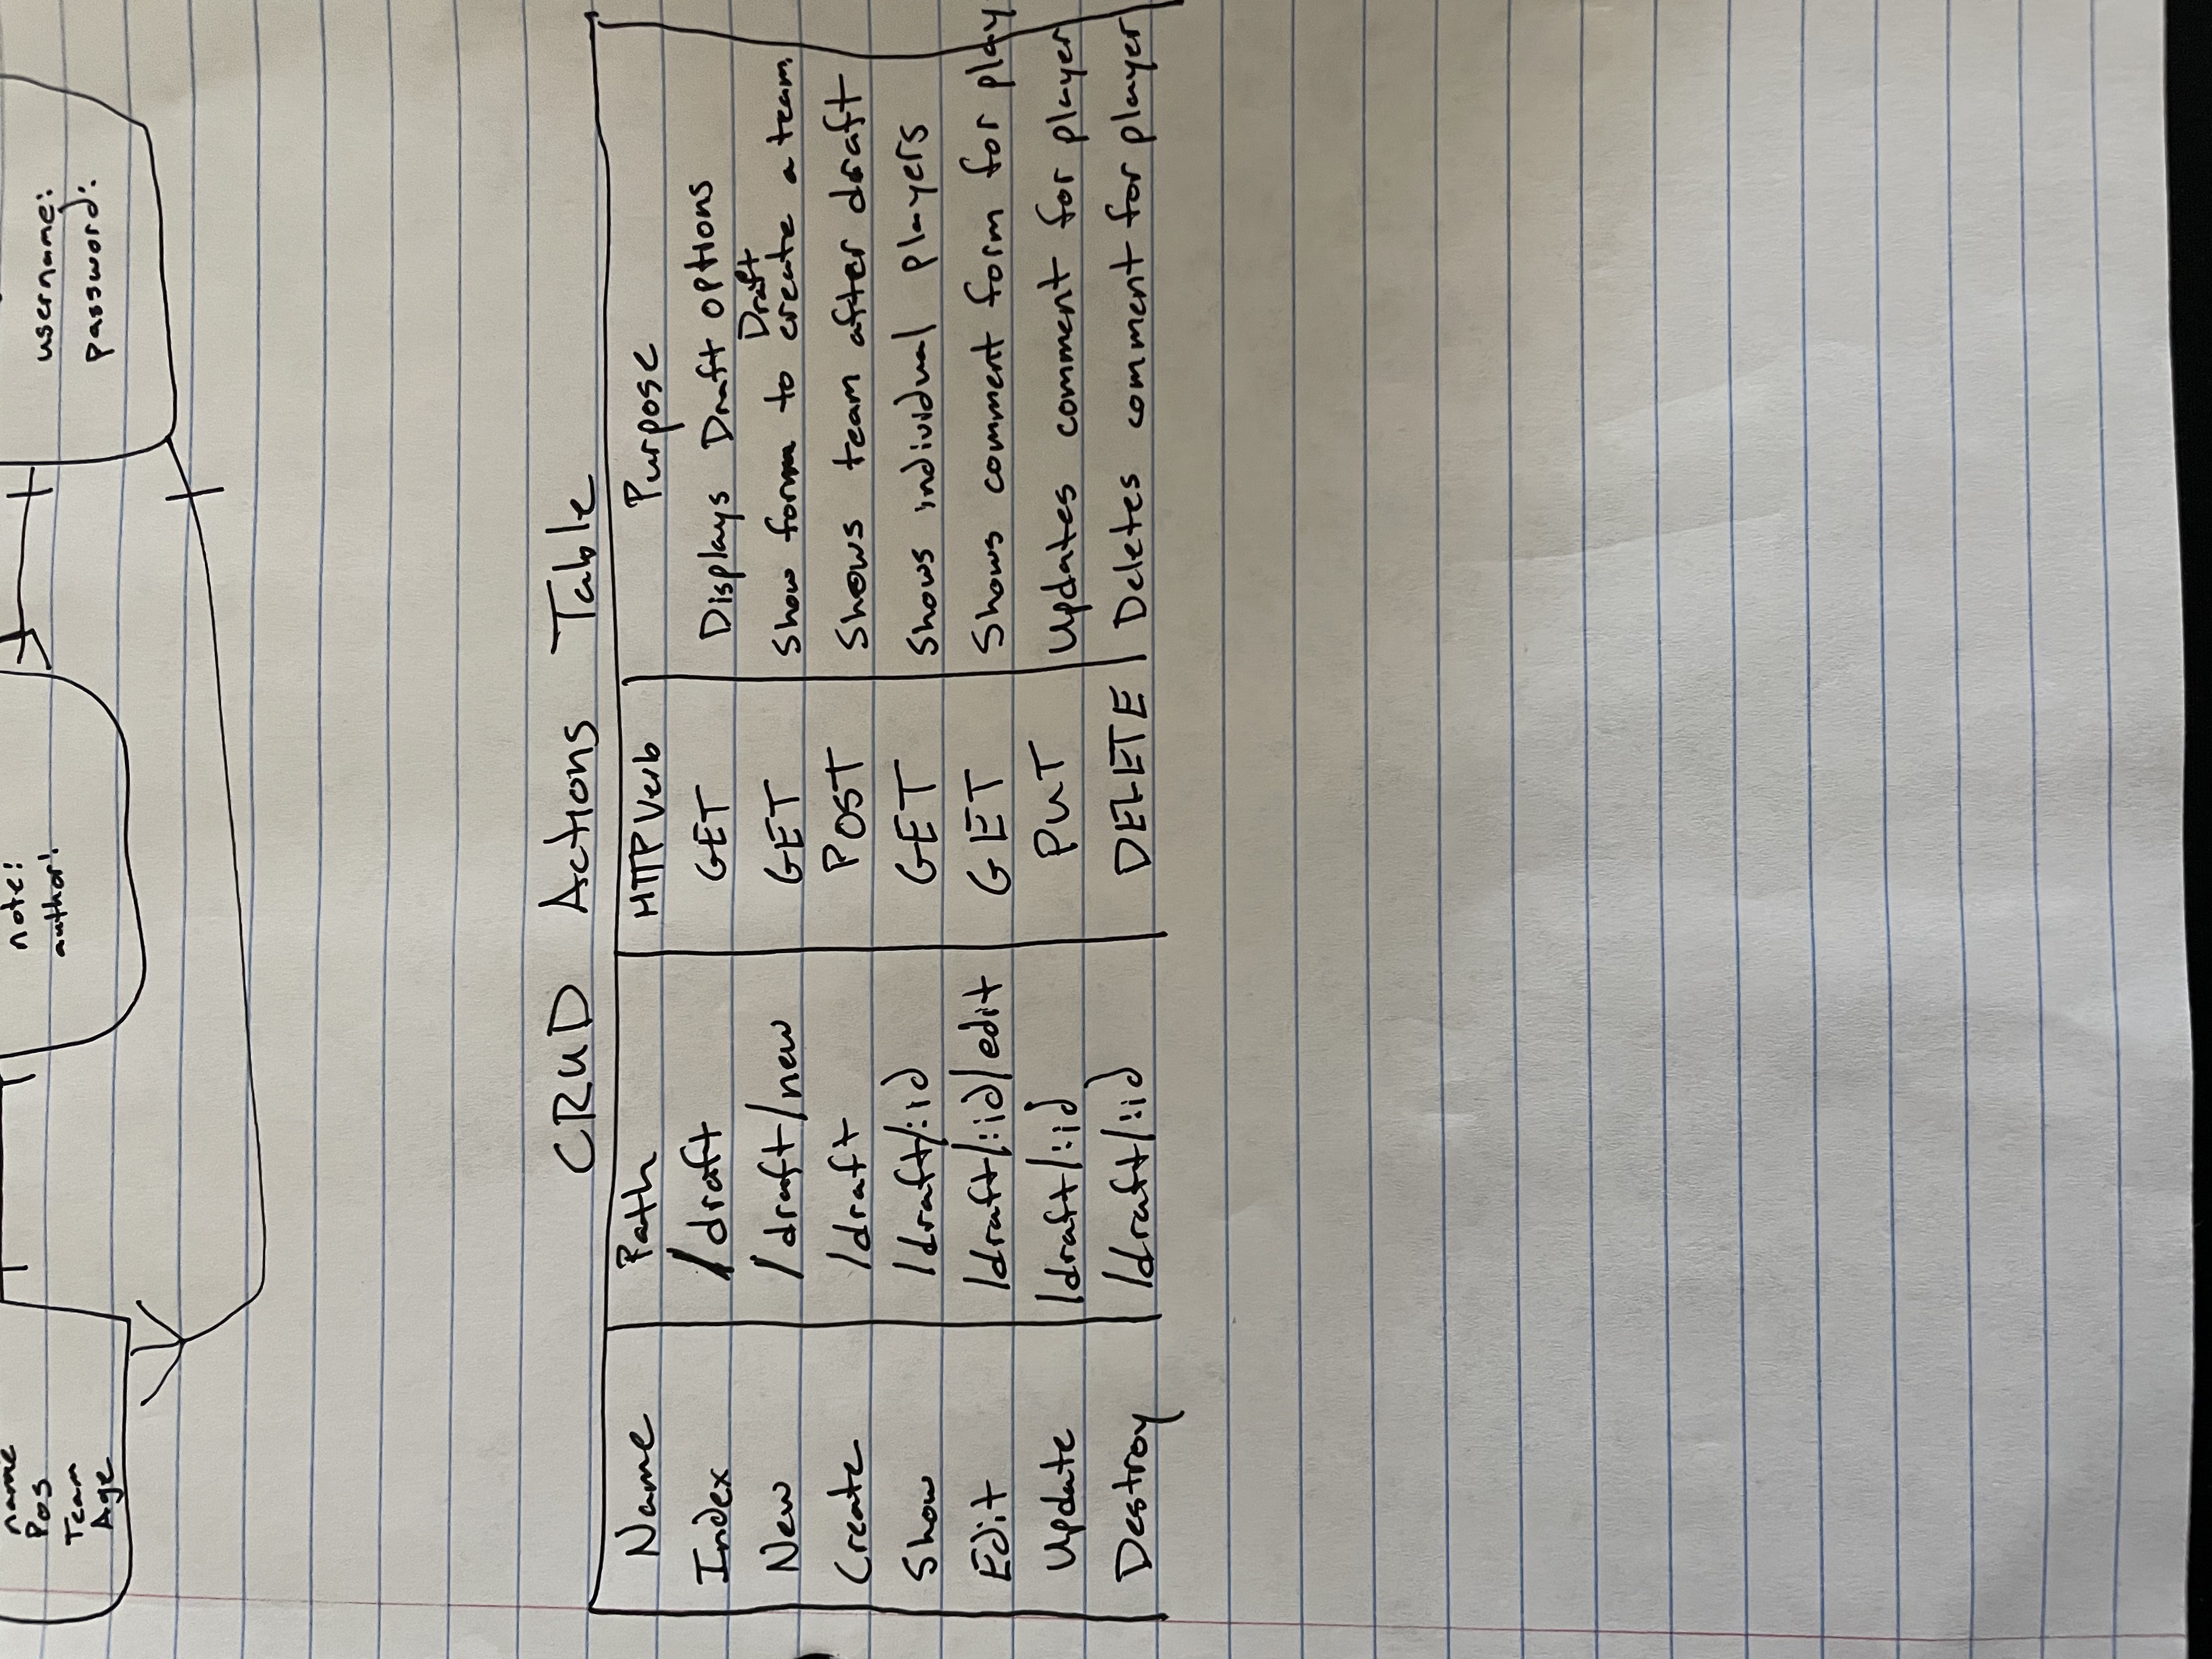 name
Pos
Team
Age
note:
author:
username:
password:
CRUD Actions Table
Name Path HTTP Verb Purpose
Index /draft GET Displays Draft options
Draft
New /draft/new GET Show form to create a team
Create /draft POST Shows team after draft
Show /draft/:id GET Shows individual players
Edit /draft/:id/edit GET Shows comment form for play
Update /draft/:id PUT Updates comment for player
Destroy /draft/:id DELETE Deletes comment for player